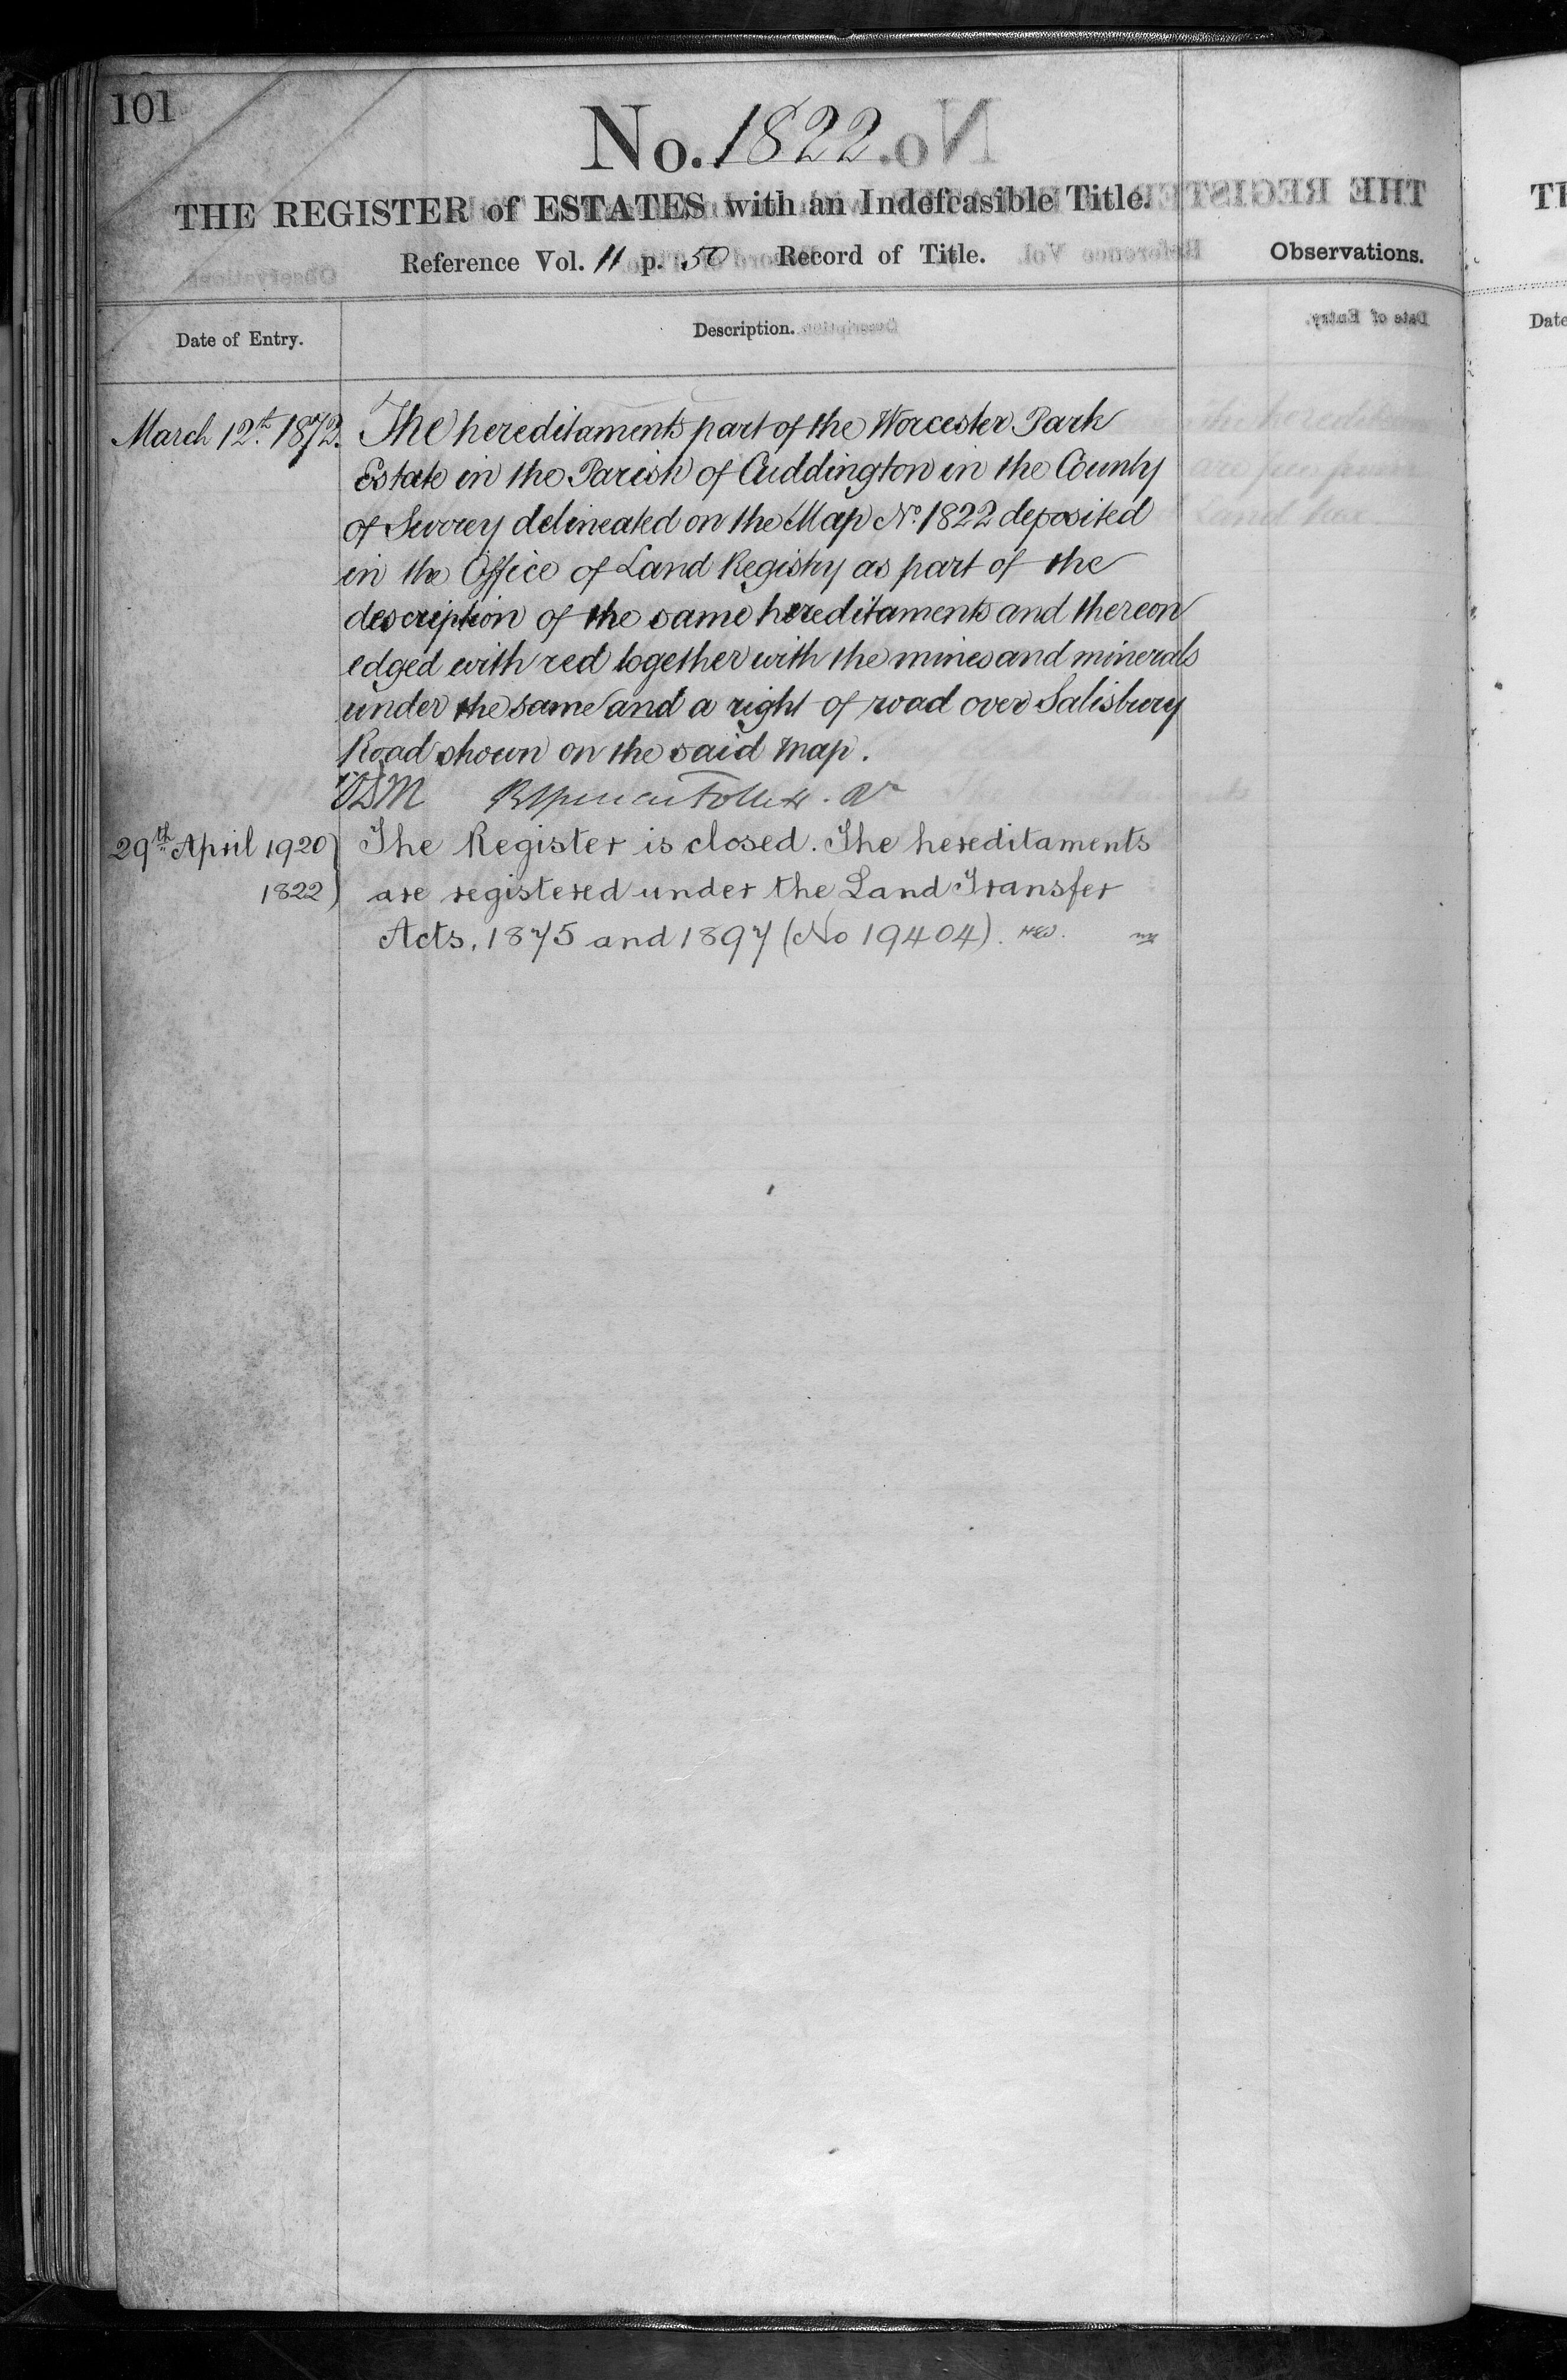 101
No. 1822.
THE REGISTER of ESTATES with an Indefeasible Title.
Reference Vol. 11 p. 50 Record of Title.
Observations.
Date of Entry.
Description.
March 12th. 1872. The hereditaments part of the Worcester Park
Estate in the Parish of Cuddington in the County
of Surrey delineated on the Map No. 1822 deposited
in the Office of Land Registry as part of the
description of the same hereditaments and thereon
edged with red together with the mines and minerals
under the same and a right of road over Salisbury
Road shown on the said Map.
29th April 1920) The Register is closed. The hereditaments
1822) are registered under the Land Transfer
Acts, 1875 and 1897 (No 19404). HEW.
TH
Date